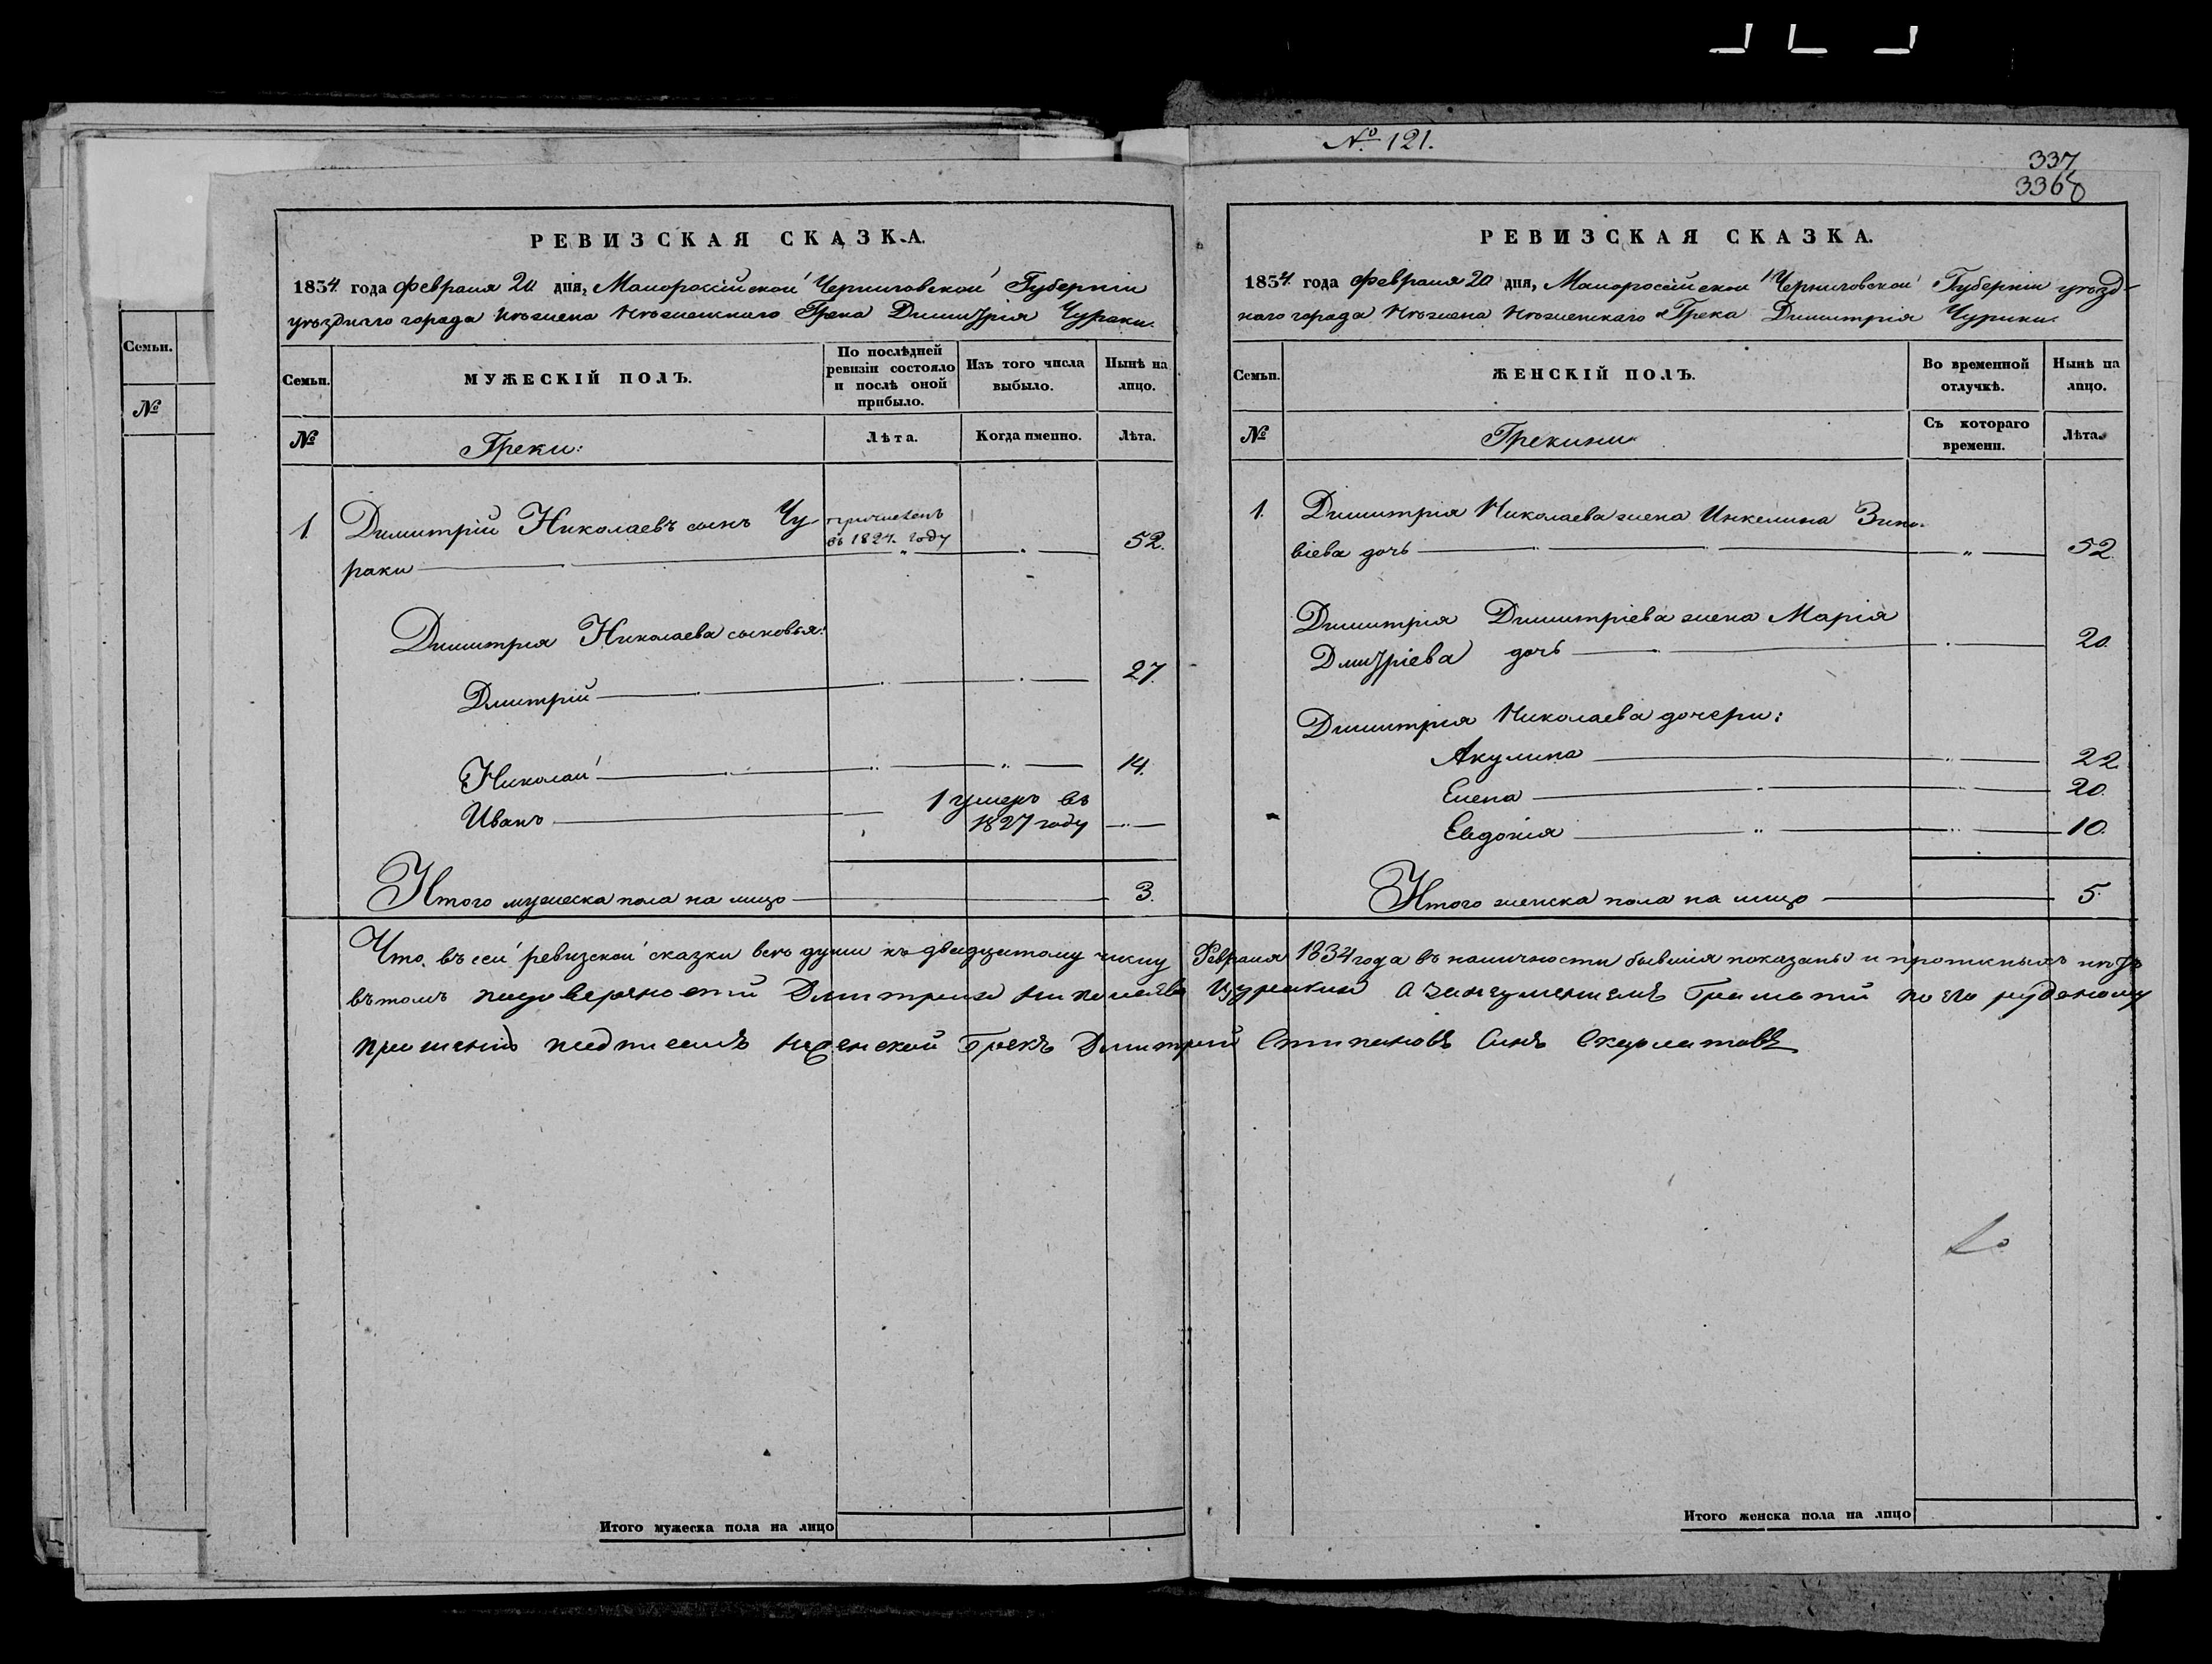 № 121.
337
3368
Семьи.
№
РЕВИЗСКАЯ СКАЗКА.
1834 года Февраля 20 дня, Малороссійской Черниговской Губерніи
уѣзднаго города Нѣжина Нѣжинскаго Грека Димитрія Чураки.
Семьи. МУЖЕСКІЙ ПОЛЪ. По послѣдней ревизіи состояло и послѣ оной прибыло. Изъ того числа выбыло. Нынѣ на лицо.
№ Греки: Лѣта. Когда именно. Лѣта.
1. Димитрій Николаевъ сынъ Чу- причисленъ
раки въ 1827. году 52.
Димитрія Николаева сыновья:
Дмитрій 27.
Николай 14.
Иванъ 1 умеръ въ
1827 году
Итого мужеска пола на лицо 3.
РЕВИЗСКАЯ СКАЗКА.
1834 года Февраля 20 дня, Малороссійской Черниговской Губерніи уѣзд-
наго города Нѣжина Нѣжинскаго Грека Димитрія Чураки.
Семьи. ЖЕНСКІЙ ПОЛЪ. Во временной отлучкѣ. Нынѣ на лицо.
№ Грекини Съ котораго времени. Лѣта.
1. Димитрія Николаева жена Зино-
віева дочь 52.
Димитрія Димитріева жена Марія
Дмитріева дочь 20.
Димитрія Николаева дочери:
Акулина 22.
Елена 20.
Евдокія 10.
Итого женска пола на лицо 5.
Что въ сей ревизской сказки всѣ души къ двадцатому числу Февраля 1834 года въ наличности бывшія показаны и
въ томъ Дмитрий а Грамоти по его
прошению подписалъ Грекъ Дмитрий Синъ
Итого мужеска пола на лицо
Итого женска пола на лицо